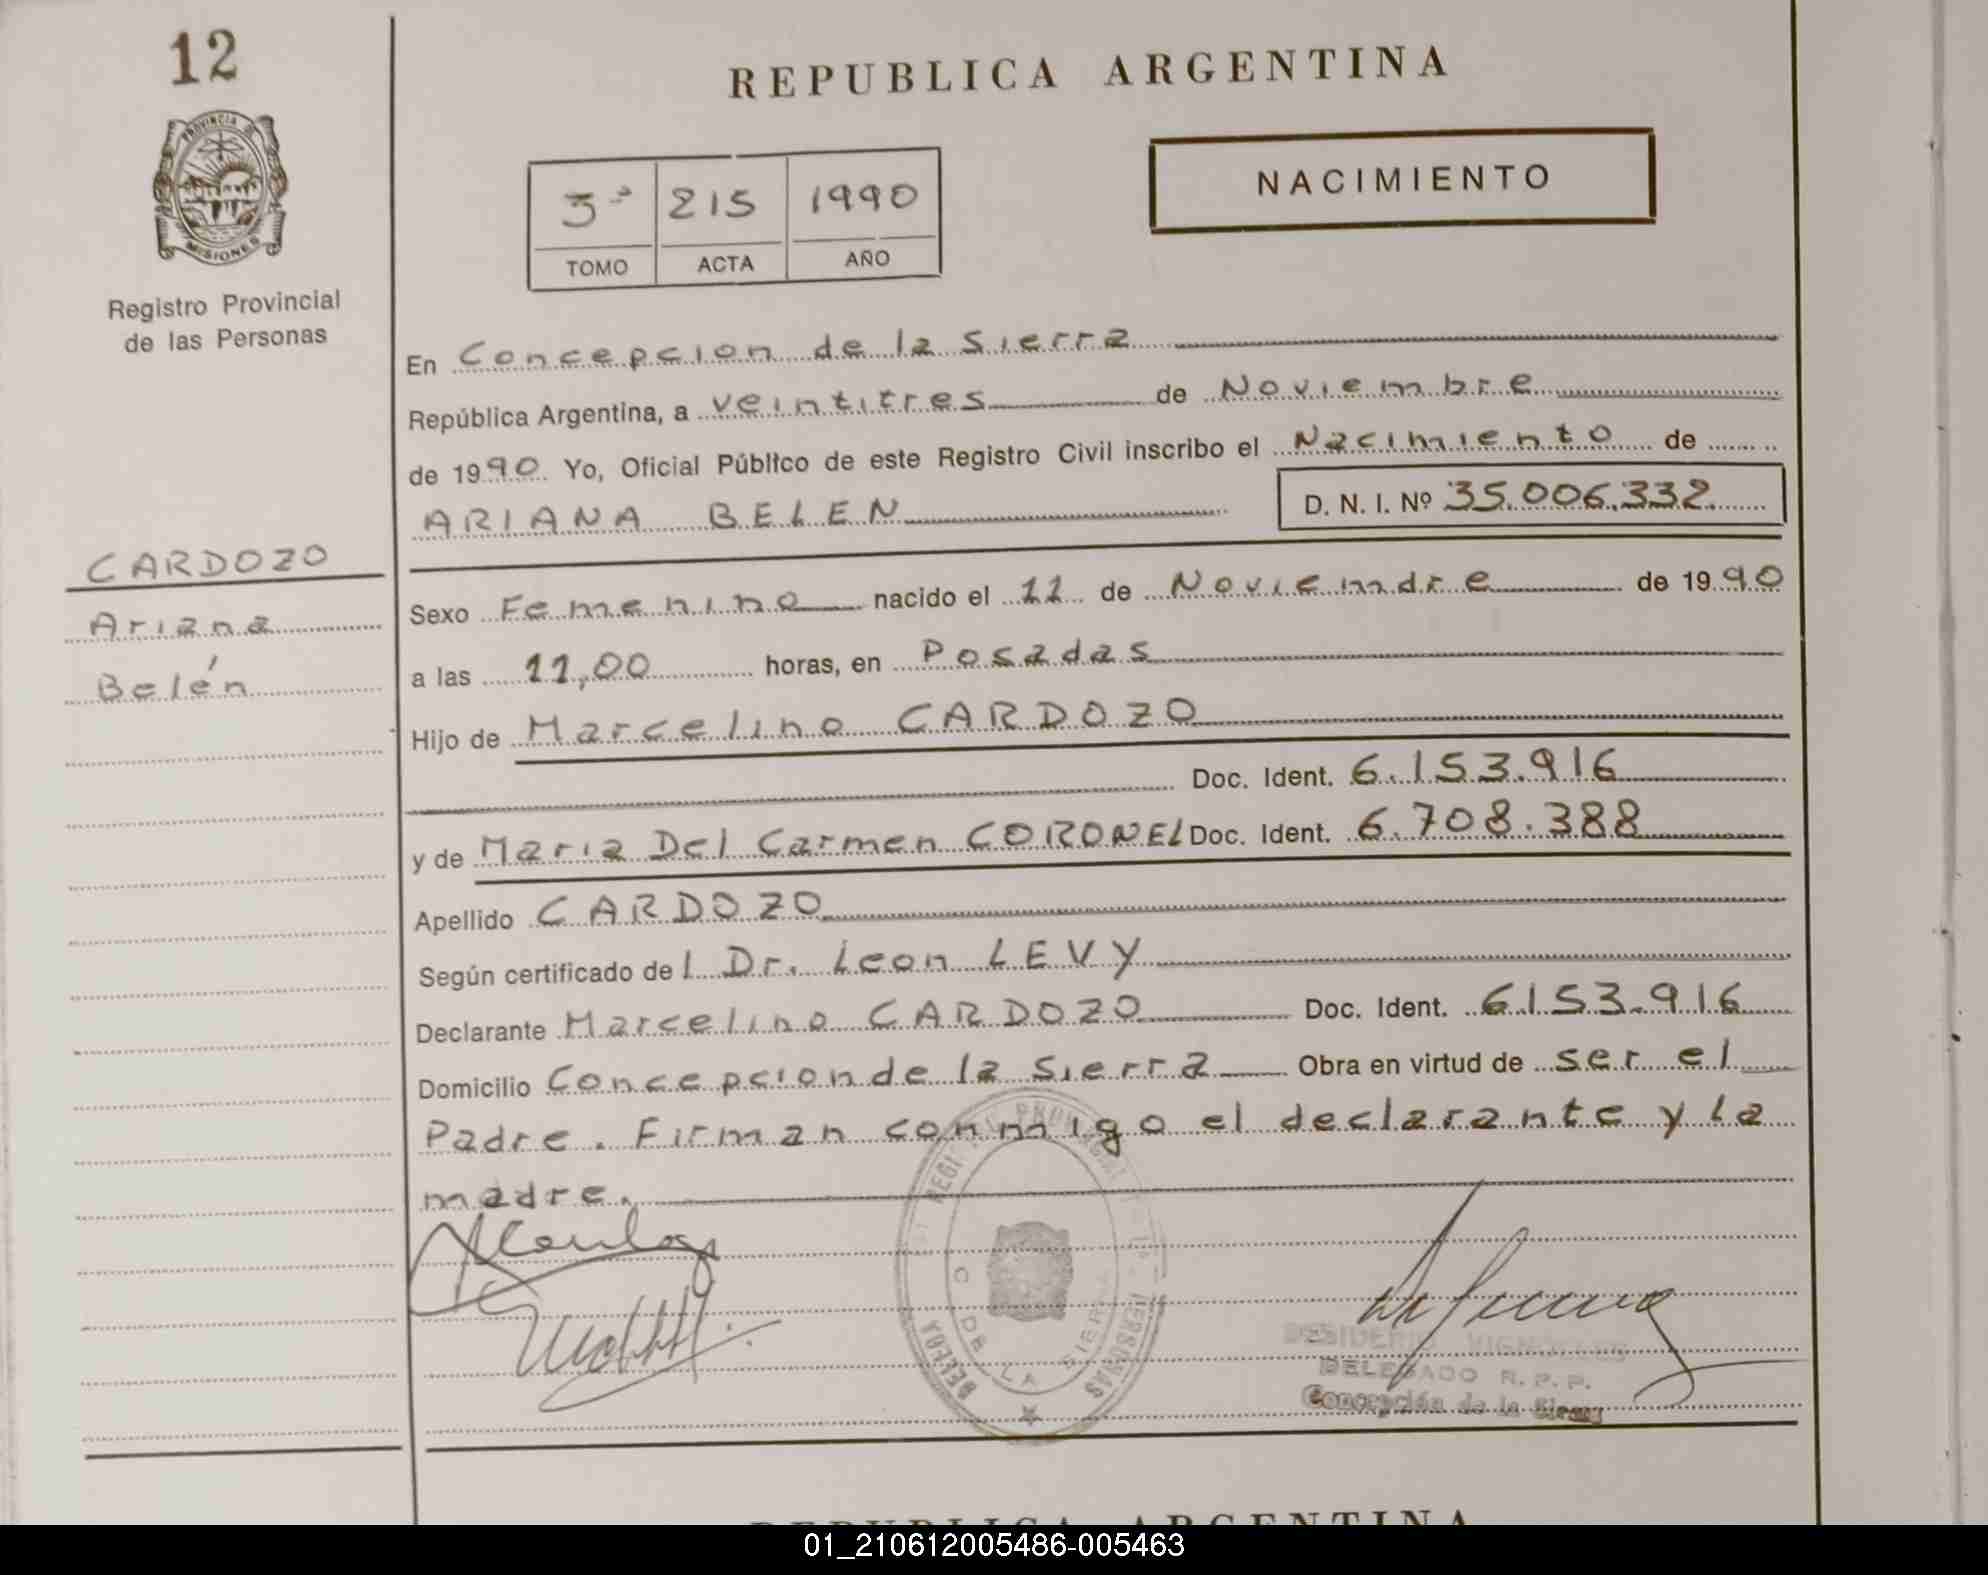 12
REPUBLICA ARGENTINA
PROVINCIA DE
MISIONES
Registro Provincial
de las Personas
3ª 215 1990
TOMO ACTA AÑO
NACIMIENTO
En Concepcion de la Sierra
República Argentina, a veintitres de Noviembre
de 1990 Yo, Oficial Público de este Registro Civil inscribo el Nacimiento de
ARIANA BELEN D. N. I. Nº 35.006.332
CARDOZO
Ariana
Belén
Sexo Femenino nacido el 11 de Noviemdre de 1990
a las 11,00 horas, en Posadas
Hijo de Marcelino CARDOZO
Doc. Ident. 6.153.916
y de Maria Del Carmen CORONEL Doc. Ident. 6.708.388
Apellido CARDOZO
Según certificado del Dr. Leon LEVY
Declarante Marcelino CARDOZO Doc. Ident. 6153.916
Domicilio Concepcion de la Sierra Obra en virtud de ser el
Padre. Firman conmigo el declarante y la
madre.
C. DE LA SIERRA
DELEGADO R. P. P.
Concepción de la Sierra
REPUBLICA ARGENTINA
01_210612005486-005463